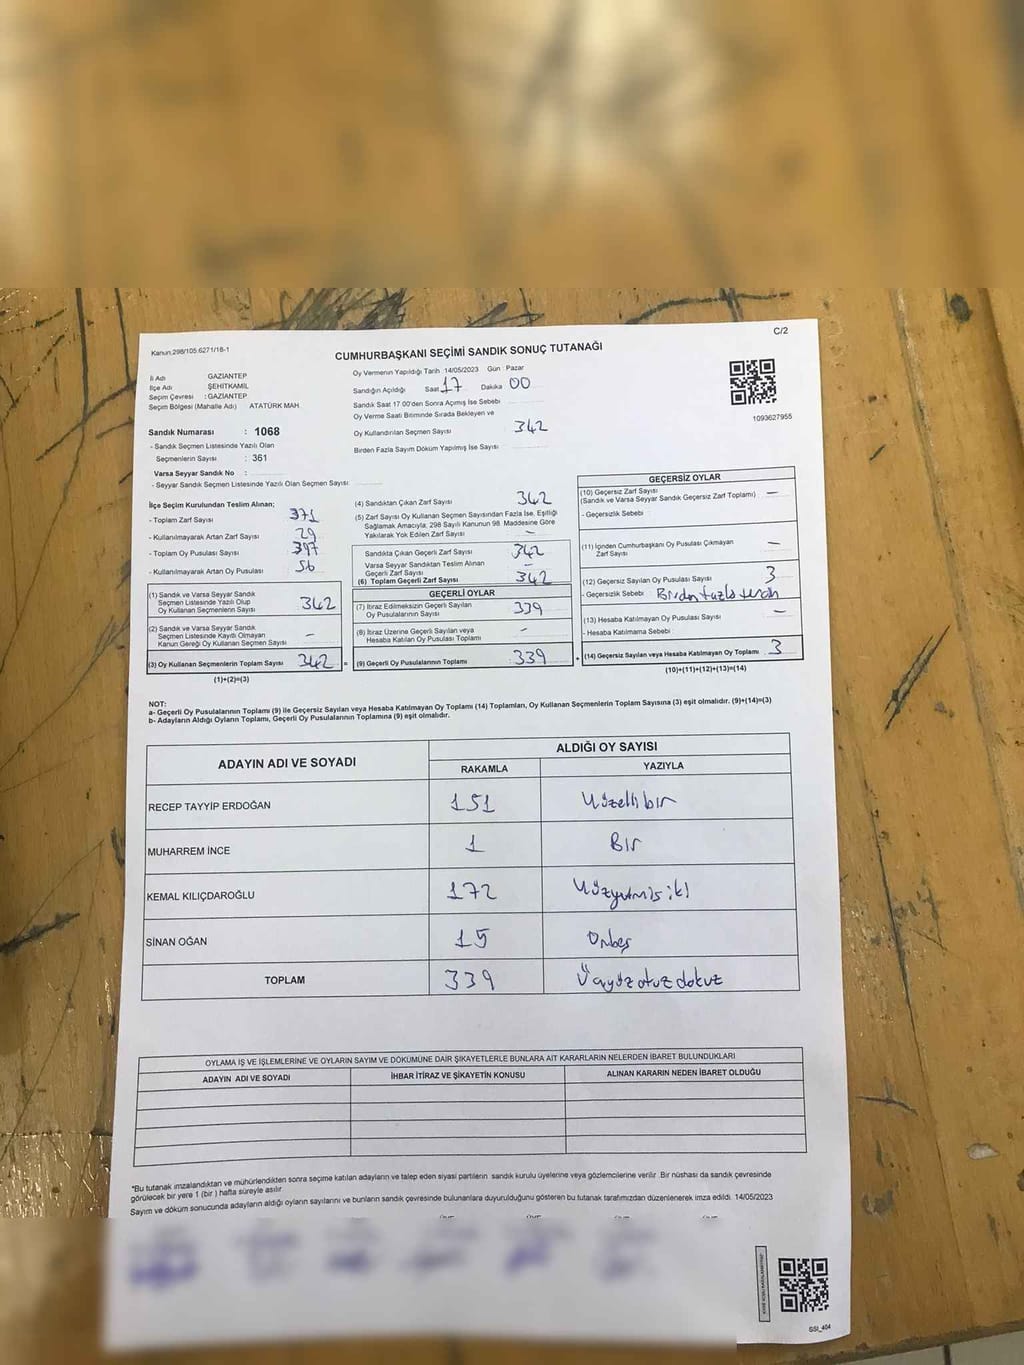 C/2
Kanun.298/105;6271/18-1
CUMHURBAŞKANI SEÇİMİ SANDIK SONUÇ TUTANAĞI
İl Adı GAZİANTEP
İlçe Adı ŞEHİTKAMİL
Seçim Çevresi : GAZİANTEP
Seçim Bölgesi (Mahalle Adı) ATATÜRK MAH
Sandık Numarası : 1068
- Sandık Seçmen Listesinde Yazılı Olan
Seçmenlerin Sayısı : 361
Varsa Seyyar Sandık No :
- Seyyar Sandık Seçmen Listesinde Yazılı Olan Seçmen Sayısı:
Oy Vermenin Yapıldığı Tarih 14/05/2023 Gün : Pazar
Sandığın Açıldığı Saat 17 Dakika 00
Sandık Saat 17.00'den Sonra Açımış İse Sebebi
Oy Verme Saati Bitiminde Sırada Bekleyen ve
Oy Kullandırılan Seçmen Sayısı 342
Birden Fazla Sayım Döküm Yapılmış İse Sayısı
1093627955
İlçe Seçim Kurulundan Teslim Alınan;
- Toplam Zarf Sayısı 371
- Kullanılmayarak Artan Zarf Sayısı 29
- Toplam Oy Pusulası Sayısı 397
- Kullanılmayarak Artan Oy Pusulası 56
(1) Sandık ve Varsa Seyyar Sandık
Seçmen Listesinde Yazılı Olup
Oy Kullanan Seçmenlerin Sayısı 342
(2) Sandık ve Varsa Seyyar Sandık
Seçmen Listesinde Kayıtlı Olmayan
Kanun Gereği Oy Kullanan Seçmen Sayısı -
(3) Oy Kullanan Seçmenlerin Toplam Sayısı 342 =
(1)+(2)=(3)
(4) Sandıktan Çıkan Zarf Sayısı 342
(5) Zarf Sayısı Oy Kullanan Seçmen Sayısından Fazla İse, Eşitliği
Sağlamak Amacıyla, 298 Sayılı Kanunun 98. Maddesine Göre
Yakılarak Yok Edilen Zarf Sayısı -
Sandıkta Çıkan Geçerli Zarf Sayısı 342
Varsa Seyyar Sandıktan Teslim Alınan
Geçerli Zarf Sayısı -
(6) Toplam Geçerli Zarf Sayısı 342
GEÇERLİ OYLAR
(7) İtiraz Edilmeksizin Geçerli Sayılan
Oy Pusulalarının Sayısı 339
(8) İtiraz Üzerine Geçerli Sayılan veya
Hesaba Katılan Oy Pusulası Toplamı -
(9) Geçerli Oy Pusulalarının Toplamı 339 +
GEÇERSİZ OYLAR
(10) Geçersiz Zarf Sayısı
(Sandık ve Varsa Seyyar Sandık Geçersiz Zarf Toplamı) -
- Geçersizlik Sebebi
(11) İçinden Cumhurbaşkanı Oy Pusulası Çıkmayan
Zarf Sayısı -
(12) Geçersiz Sayılan Oy Pusulası Sayısı 3
- Geçersizlik Sebebi Birden fazla tercih
(13) Hesaba Katılmayan Oy Pusulası Sayısı -
- Hesaba Katılmama Sebebi
(14) Geçersiz Sayılan veya Hesaba Katılmayan Oy Toplamı 3
(10)+(11)+(12)+(13)=(14)
NOT:
a- Geçerli Oy Pusulalarının Toplamı (9) ile Geçersiz Sayılan veya Hesaba Katılmayan Oy Toplamı (14) Toplamları, Oy Kullanan Seçmenlerin Toplam Sayısına (3) eşit olmalıdır. (9)+(14)=(3)
b- Adayların Aldığı Oyların Toplamı, Geçerli Oy Pusulalarının Toplamına (9) eşit olmalıdır.
ADAYIN ADI VE SOYADI ALDIĞI OY SAYISI
RAKAMLA YAZIYLA
RECEP TAYYİP ERDOĞAN 151 Yüzellibir
MUHARREM İNCE 1 Bir
KEMAL KILIÇDAROĞLU 172 Yüzyetmişiki
SİNAN OĞAN 15 Onbeş
TOPLAM 339 Üçyüzotuzdokuz
OYLAMA İŞ VE İŞLEMLERİNE VE OYLARIN SAYIM VE DÖKÜMÜNE DAİR ŞİKAYETLERLE BUNLARA AİT KARARLARIN NELERDEN İBARET BULUNDUKLARI
ADAYIN ADI VE SOYADI İHBAR İTİRAZ VE ŞİKAYETİN KONUSU ALINAN KARARIN NEDEN İBARET OLDUĞU
*Bu tutanak imzalandıktan ve mühürlendikten sonra seçime katılan adayların ve talep eden siyasi partilerin sandık kurulu üyelerine veya gözlemcilerine verilir. Bir nüshası da sandık çevresinde
görülecek bir yere 1 (bir ) hafta süreyle asılır.
Sayım ve döküm sonucunda adayların aldığı oyların sayılarını ve bunların sandık çevresinde bulunanlara duyurulduğunu gösteren bu tutanak tarafımızdan düzenlenerek imza edildi. 14/05/2023
GSI_404